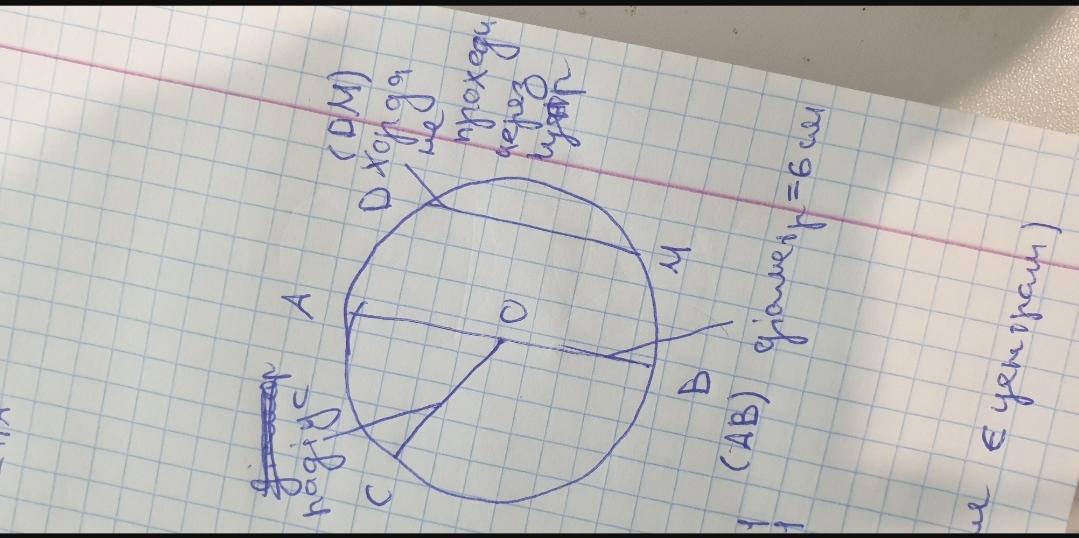 (DM)
хорда
не
проходи
через
A
D
радіус
O
C
M
B
(AB) діаметр = 6 см
є центром)